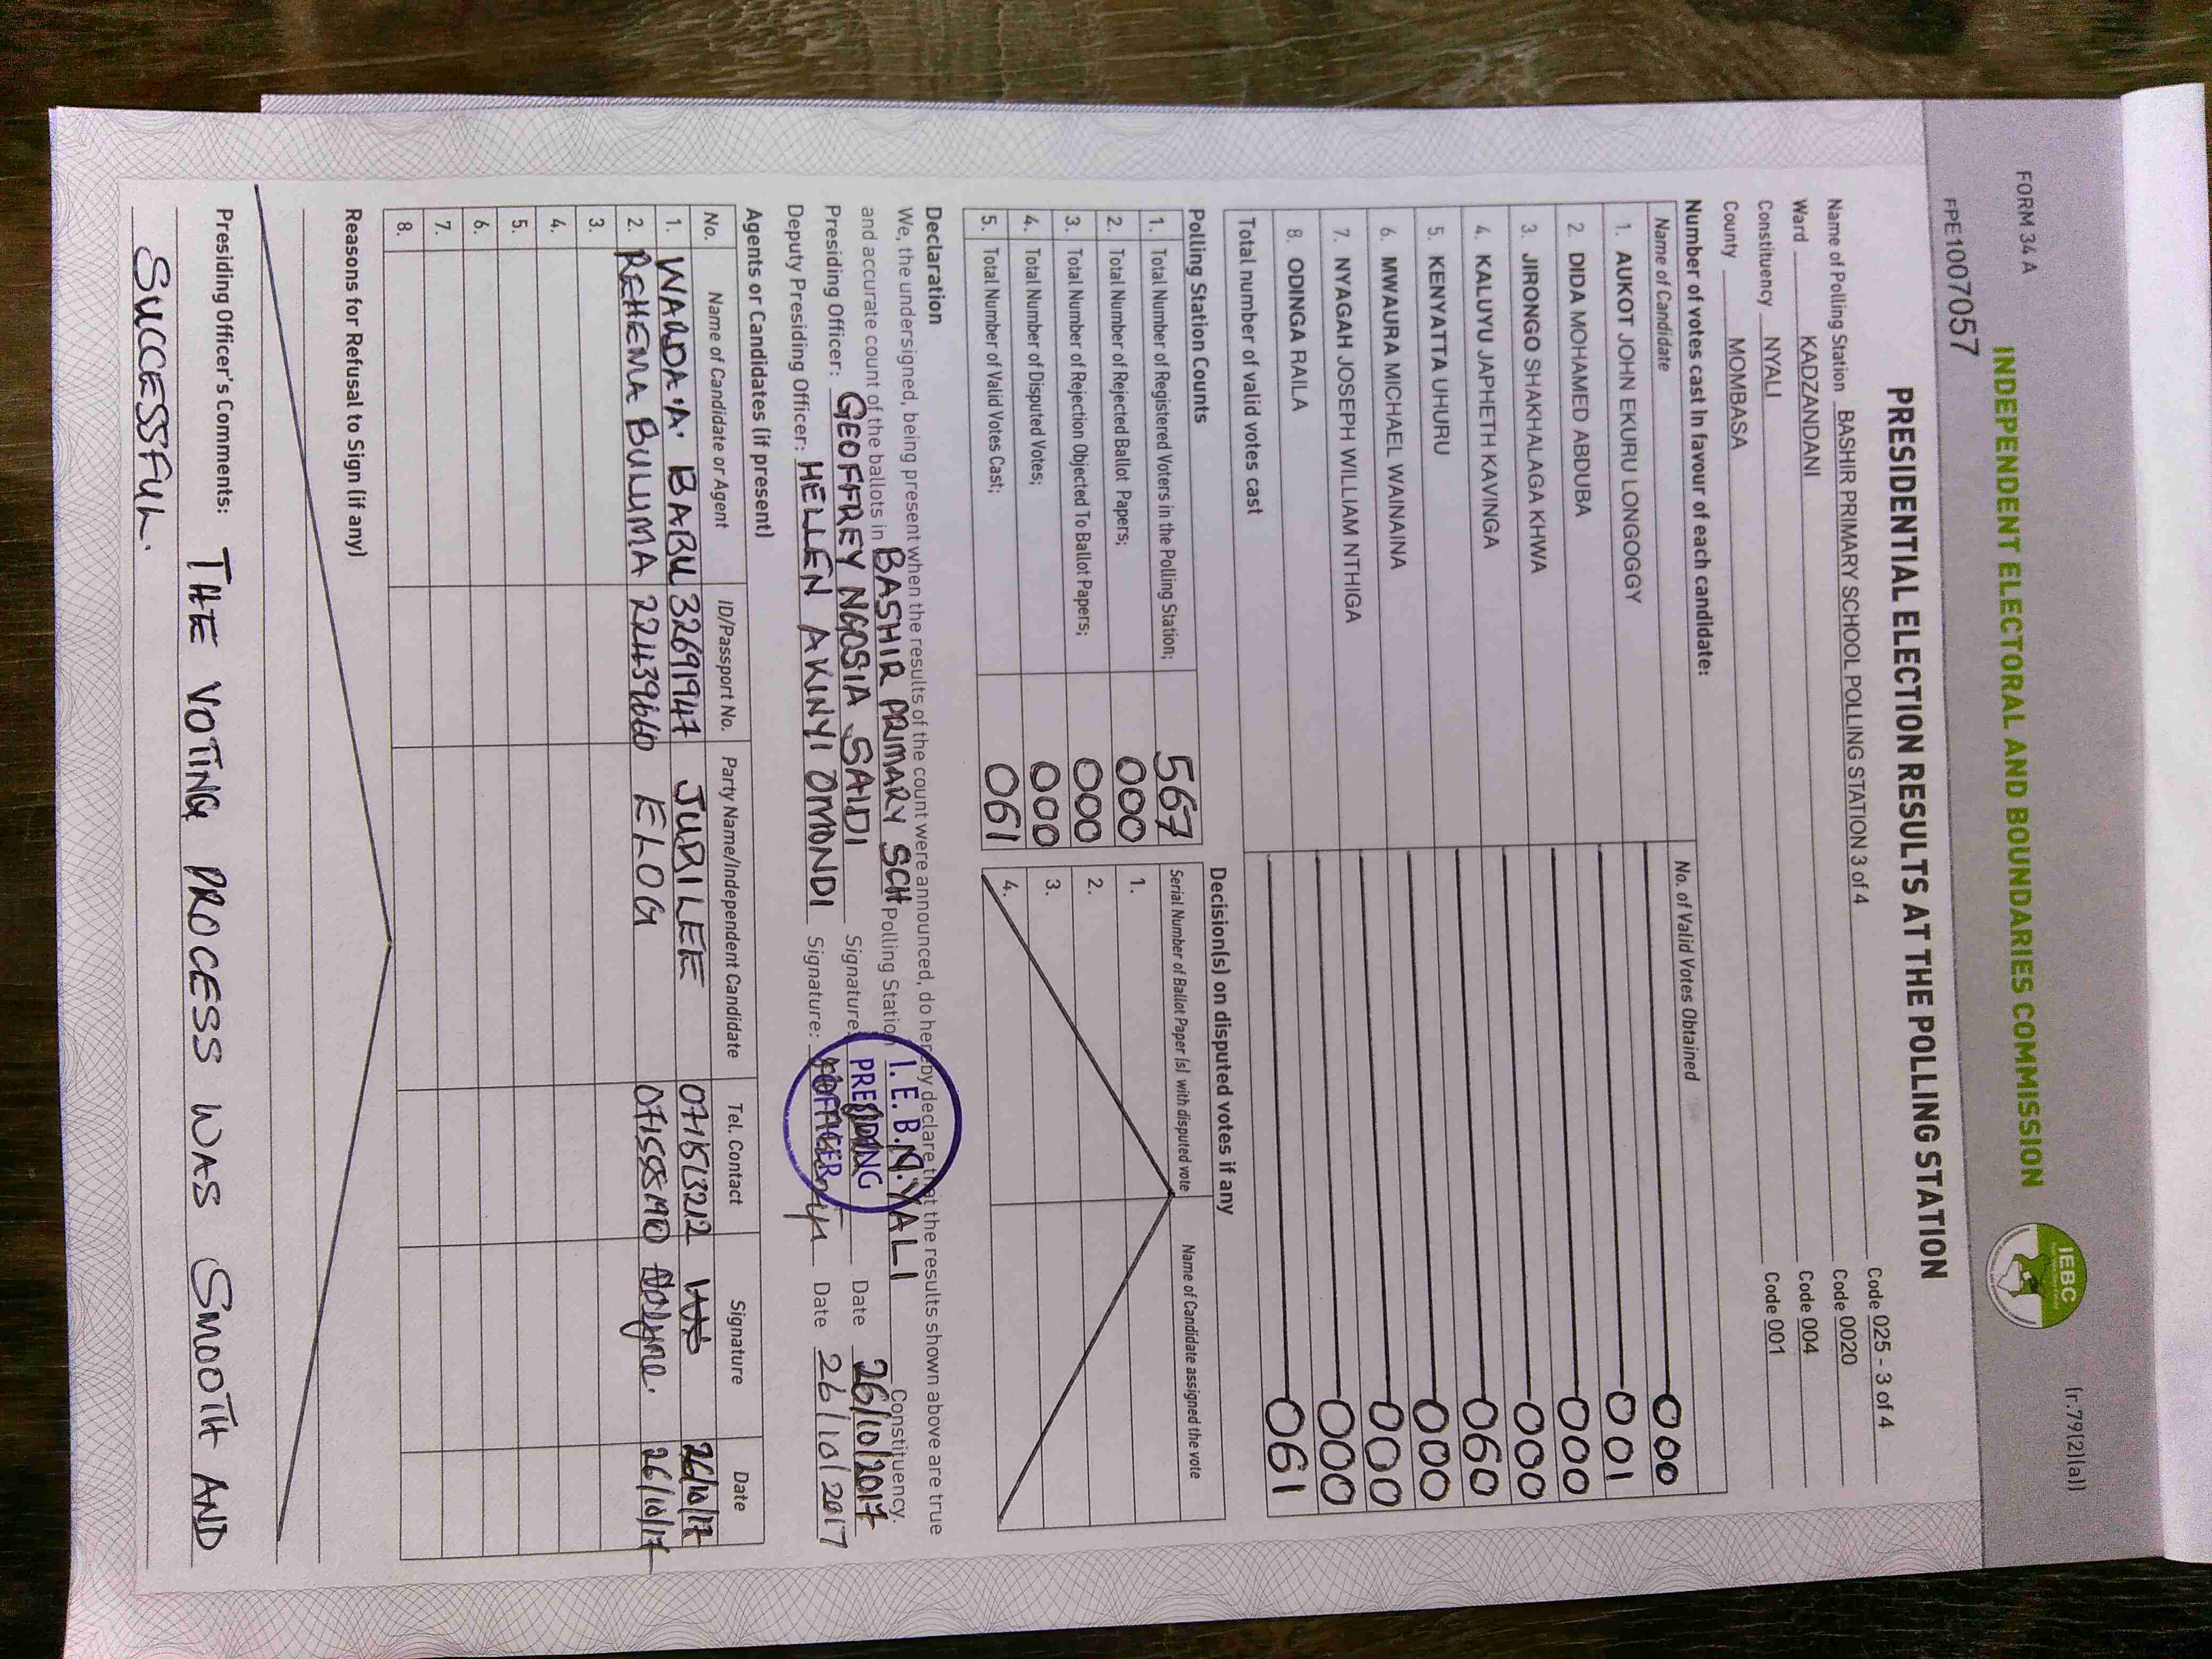 FORM 34 A
(r.79(2)(a))
INDEPENDENT ELECTORAL AND BOUNDARIES COMMISSION
IEBC
FPE1007057
PRESIDENTIAL ELECTION RESULTS AT THE POLLING STATION
Name of Polling Station BASHIR PRIMARY SCHOOL POLLING STATION 3 of 4 Code 025 - 3 of 4
Ward KADZANDANI Code 0020
Constituency NYALI Code 004
County MOMBASA Code 001
Number of votes cast In favour of each candidate:
Name of Candidate No. of Valid Votes Obtained
1. AUKOT JOHN EKURU LONGOGGY 000
2. DIDA MOHAMED ABDUBA 001
3. JIRONGO SHAKHALAGA KHWA 000
4. KALUYU JAPHETH KAVINGA 000
5. KENYATTA UHURU 060
6. MWAURA MICHAEL WAINAINA 000
7. NYAGAH JOSEPH WILLIAM NTHIGA 000
8. ODINGA RAILA 000
Total number of valid votes cast 061
Polling Station Counts
1. Total Number of Registered Voters in the Polling Station; 567
2. Total Number of Rejected Ballot Papers; 000
3. Total Number of Rejection Objected To Ballot Papers; 000
4. Total Number of Disputed Votes; 000
5. Total Number of Valid Votes Cast; 061
Decision(s) on disputed votes if any
Serial Number of Ballot Paper (s) with disputed vote Name of Candidate assigned the vote
1.
2.
3.
4.
Declaration
We, the undersigned, being present when the results of the count were announced, do hereby declare that the results shown above are true
and accurate count of the ballots in BASHIR PRIMARY SCH Polling Station NYALI Constituency.
Presiding Officer: GEOFFREY NGOSIA SAIDI Signature: Date 26/10/2017
Deputy Presiding Officer: HELLEN AKINYI OMONDI Signature: Date 26/10/2017
I. E. B. C.
PRESIDING
OFFICER
Agents or Candidates (if present)
No. Name of Candidate or Agent ID/Passport No. Party Name/Independent Candidate Tel. Contact Signature Date
1. WARDA'A. BABU 32691947 JUBILEE 26/10/17
2. REHEMA BULUMA 22439660 ELOG 26/10/17
3.
4.
5.
6.
7.
8.
Reasons for Refusal to Sign (if any)
Presiding Officer's Comments: THE VOTING PROCESS WAS SMOOTH AND
SUCCESSFUL.